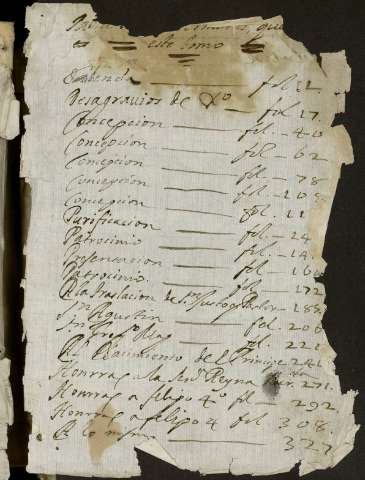 que
este tomo
fol 12.
Desagravios de Xo fol 17.
Concepcion fol. - 40
Concepcion fol - 62
Concepcion fol - 78
Concepcion fol. - 108
Concepcion fol. 11
Purificacion fol. - 24
Patrocinio fol. - 14
Presentacion fol - 160
Patrocinio. fol - 172
A la traslacion de Sn Justo y Pastor - 188
Sn Agustin fol - 206
fol. 221
Al Nacimiento de el Principe 241
Honrras a la Reyna 271.
Honrras a felipo 4º fl - 292
Honrras a felipo 4 fol 308.
A lo mismo 327